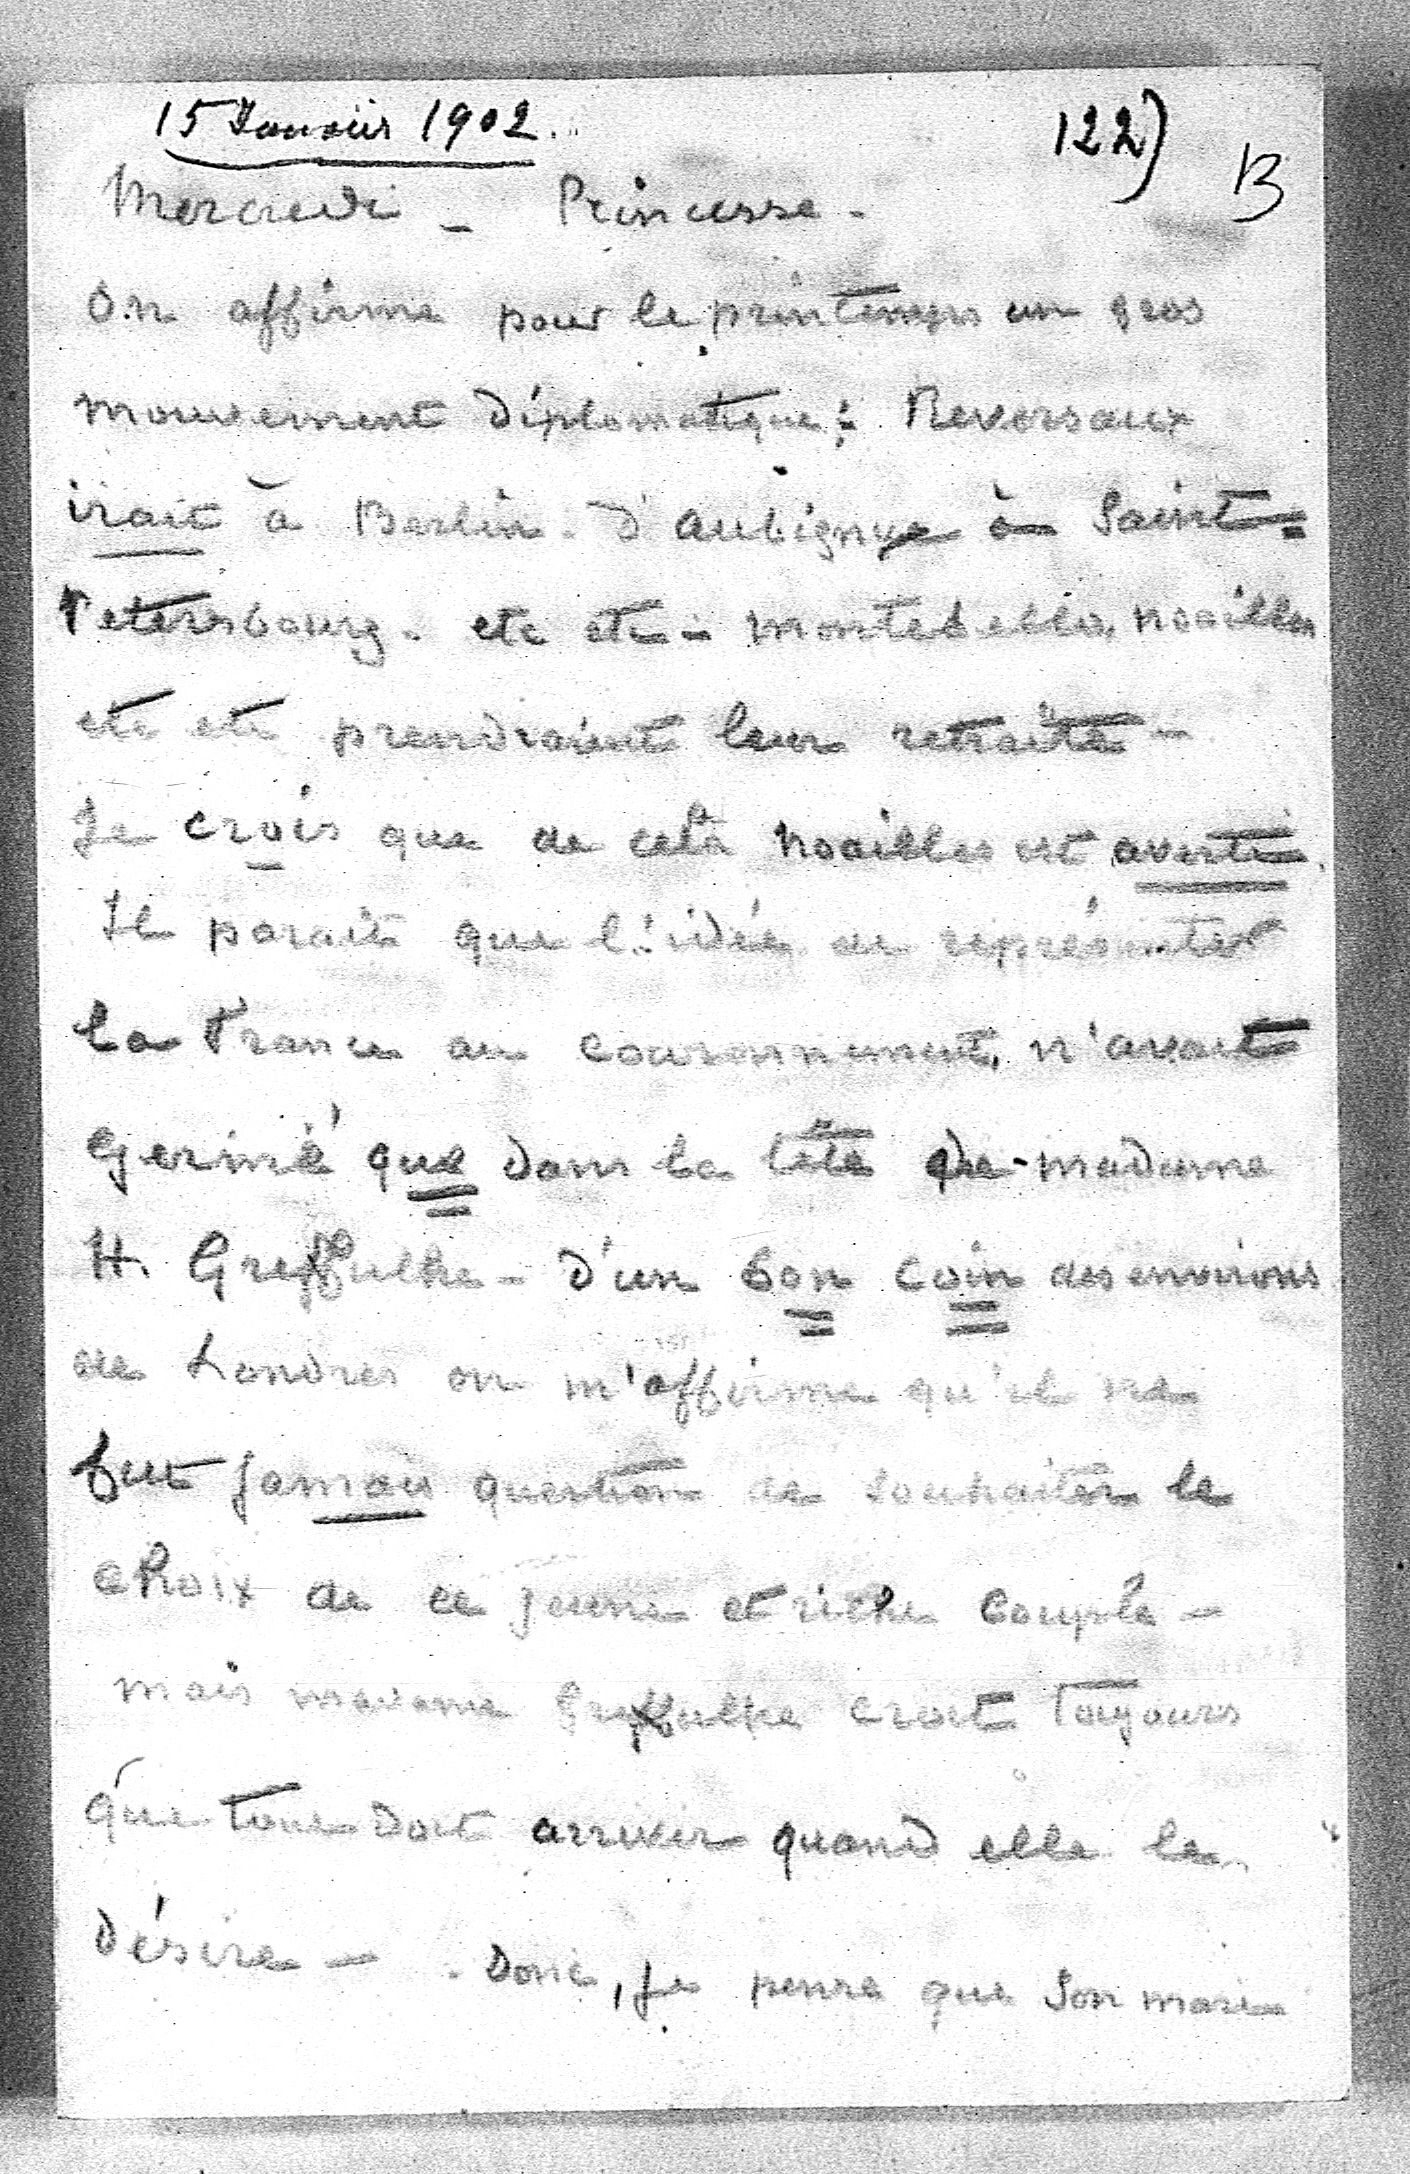 15 Janvier 1902.
122)
B
Mercredi - Princesse -
On affirme pour le printemps un gros
mouvement diplomatique : Reversaux
irait à Berlin. d'Aubigny à Saint=
Petersbourg. etc etc - Montebello, Noailles
etc etc prendraient leur retraite -
Je crois que de cela Noailles est averti.
Il parait que l'idée de représenter
la France au couronnement, n'avait
germé que dans la tête de madame
H. Greffulhe - D'un bon coin des environs
de Londres on m'affirme qu'il ne
fut jamais question de souhaiter le
choix de ce jeune et riche couple -
mais madame Greffulhe croit toujours
que tout doit arriver quand elle le
désire - . Donc, je pense que son mari